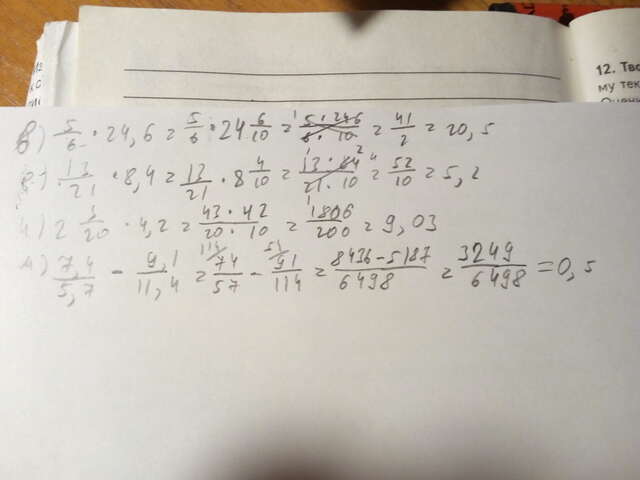 12. Тво
му тек
Оцени
в) 5/6 · 24,6 = 5/6 · 24 6/10 = 5 · 246 / 6 · 10 = 41/2 = 20,5
г) 13/21 · 8,4 = 13/21 · 8 4/10 = 13 · 84 / 21 · 10 = 52/10 = 5,2
2 3/20 · 4,2 = 43 · 42 / 20 · 10 = 1806/200 = 9,03
7,4/5,7 - 9,1/11,4 = 74/57 - 91/114 = 8436-5187 / 6498 = 3249/6498 = 0,5